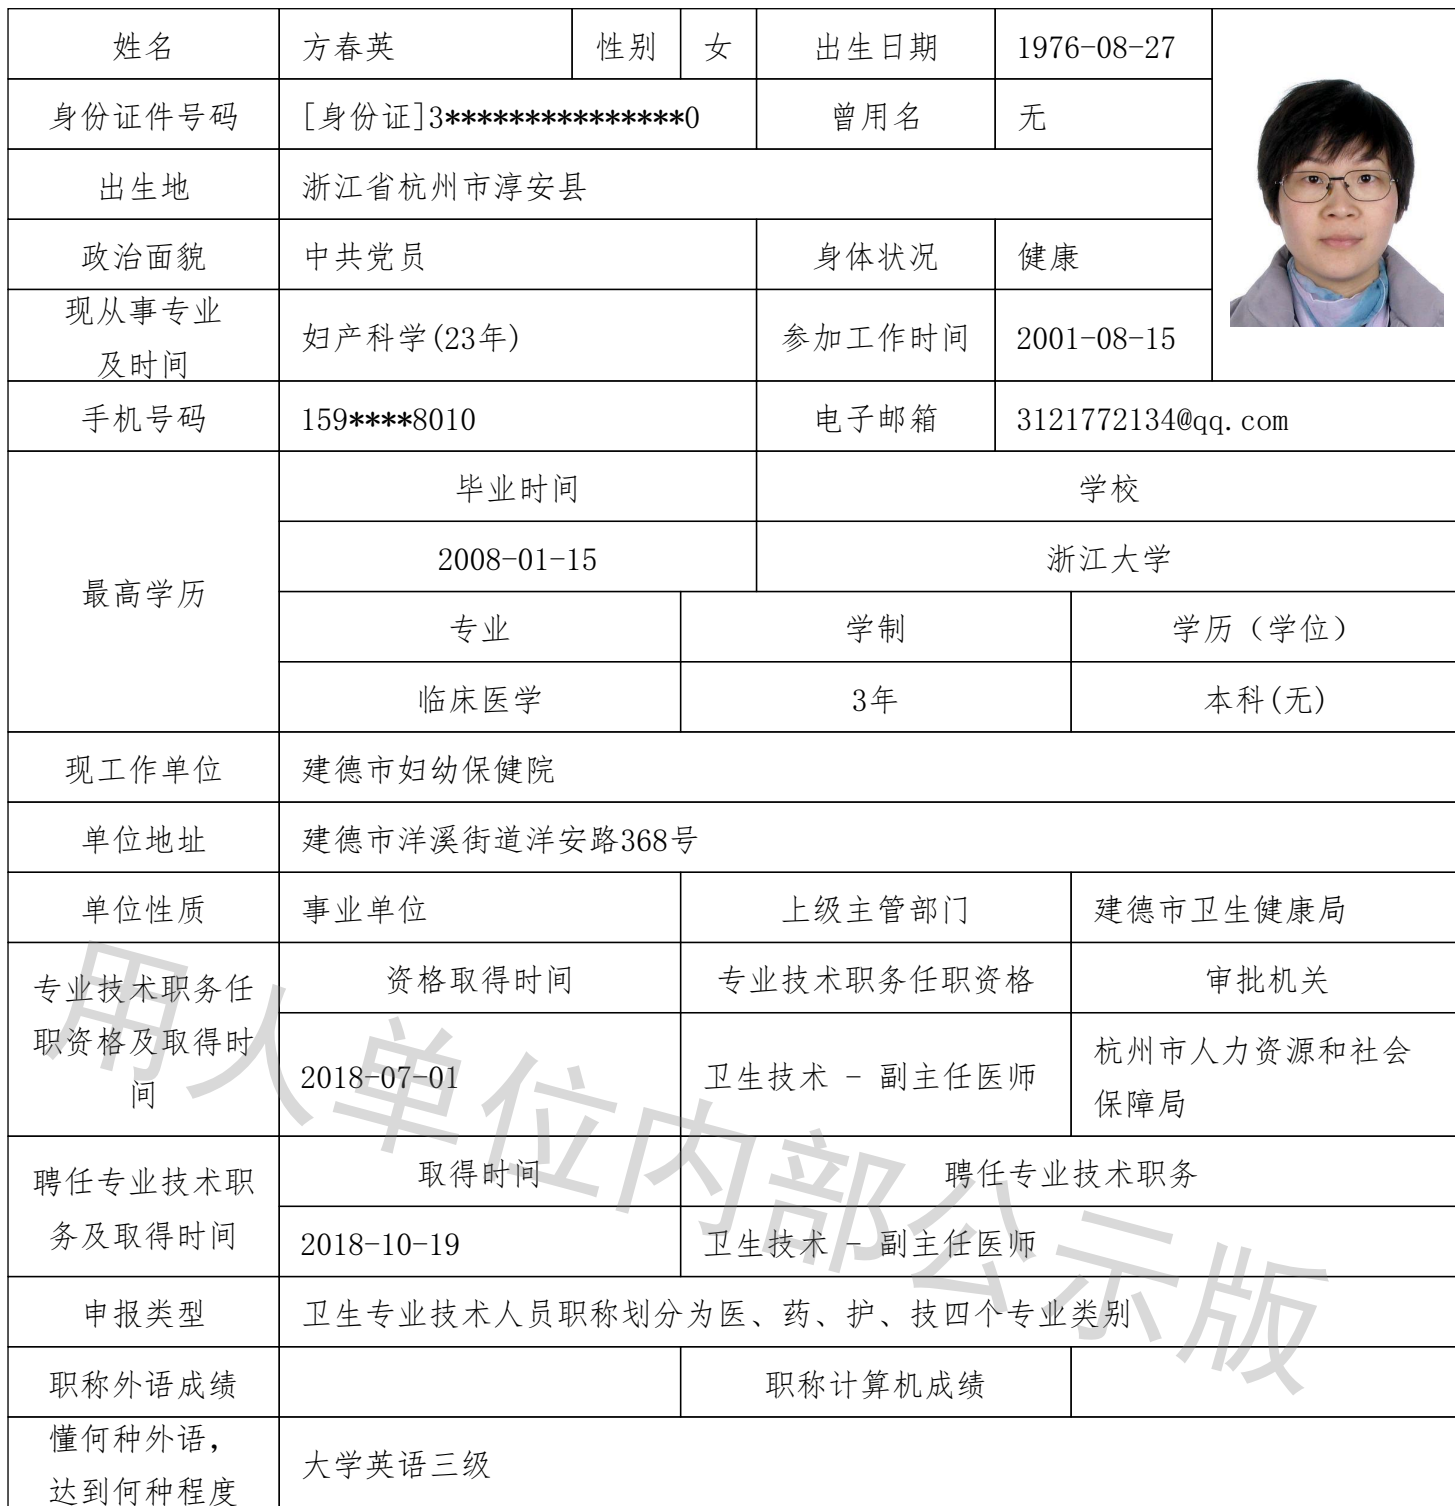 姓名 方春英 性别 女 出生日期 1976-08-27
身份证件号码 [身份证]3***************0 曾用名 无
出生地 浙江省杭州市淳安县
政治面貌 中共党员 身体状况 健康
现从事专业
及时间
妇产科学(23年) 参加工作时间 2001-08-15
手机号码 159****8010 电子邮箱 3121772134@qq.com
最高学历
毕业时间 学校
2008-01-15 浙江大学
专业 学制 学历（学位）
临床医学 3年 本科(无)
现工作单位 建德市妇幼保健院
单位地址 建德市洋溪街道洋安路368号
单位性质 事业单位 上级主管部门 建德市卫生健康局
专业技术职务任
职资格及取得时
间
资格取得时间 专业技术职务任职资格 审批机关
2018-07-01 卫生技术 - 副主任医师 杭州市人力资源和社会
保障局
聘任专业技术职
务及取得时间
取得时间 聘任专业技术职务
2018-10-19 卫生技术 - 副主任医师
申报类型 卫生专业技术人员职称划分为医、药、护、技四个专业类别
职称外语成绩 职称计算机成绩
懂何种外语，
达到何种程度
大学英语三级
用人单位内部公示版